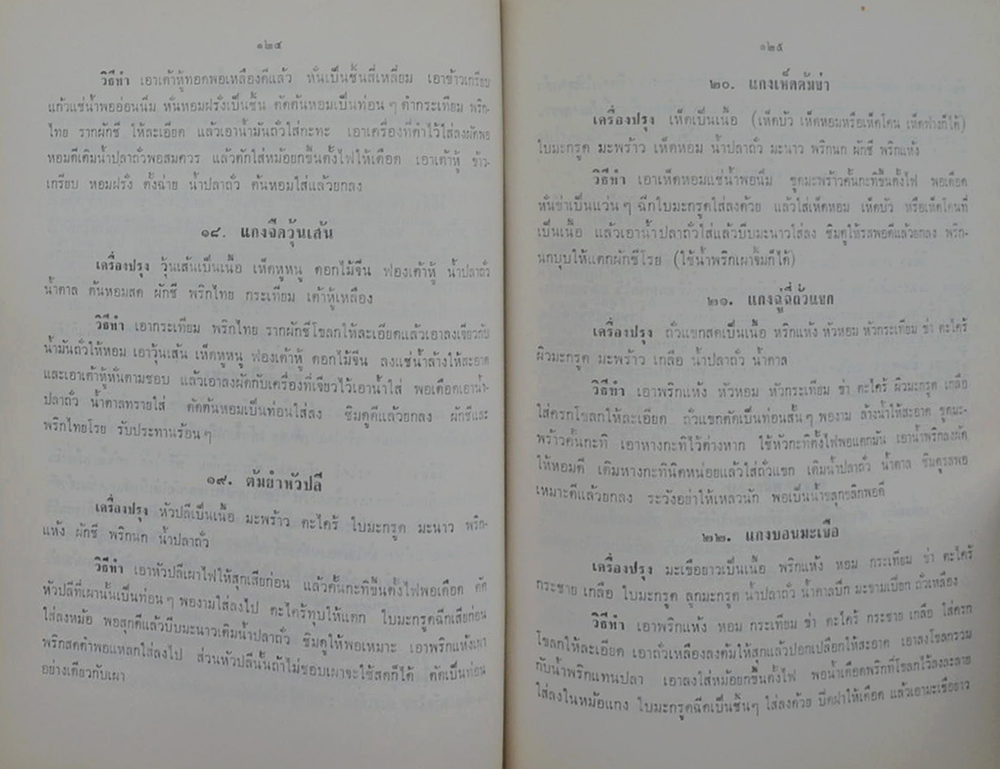 ๑๒๔
วิธีทำ เอาเต้าหู้ทอดพอเหลืองดีแล้ว หั่นเป็นชิ้นสี่เหลี่ยม เอาข้าวเกรียบ
แก้วแช่น้ำพออ่อนนิ่ม หั่นหอมฝรั่งเป็นชิ้น ตัดต้นหอมเป็นท่อนๆ ตำกระเทียม พริก-
ไทย รากผักชี ให้ละเอียด แล้วเอาน้ำมันถั่วใส่กะทะ เอาเครื่องที่ตำไว้ใส่ลงผัดพอ
หอมดีเติมน้ำปลาถั่วพอสมควร แล้วตักใส่หม้อยกขึ้นตั้งไฟให้เดือด เอาเต้าหู้ ข้าว-
เกรียบ หอมฝรั่ง ตั้งฉ่าย น้ำปลาถั่ว ต้นหอมใส่แล้วยกลง
๑๘. แกงจืดวุ้นเส้น
เครื่องปรุง วุ้นเส้นเป็นเนื้อ เห็ดหูหนู ดอกไม้จีน ฟองเต้าหู้ น้ำปลาถั่ว
น้ำตาล ต้นหอมสด ผักชี พริกไทย กระเทียม เต้าหู้เหลือง
วิธีทำ เอากระเทียม พริกไทย รากผักชีโขลกให้ละเอียดแล้วเอาลงเจียวกับ
น้ำมันถั่วให้หอม เอาวุ้นเส้น เห็ดหูหนู ฟองเต้าหู้ ดอกไม้จีน ลงแช่น้ำล้างให้สะอาด
และเอาเต้าหู้หั่นตามชอบ แล้วเอาลงผัดกับเครื่องที่เจียวไว้เอาน้ำใส่ พอเดือดเอาน้ำ-
ปลาถั่ว น้ำตาลทรายใส่ ตัดต้นหอมเป็นท่อนใส่ลง ชิมดูดีแล้วยกลง ผักชีและ
พริกไทยโรย รับประทานร้อนๆ
๑๙. ต้มยำหัวปลี
เครื่องปรุง หัวปลีเป็นเนื้อ มะพร้าว ตะไคร้ ใบมะกรูด มะนาว พริก-
แห้ง ผักชี พริกนก น้ำปลาถั่ว
วิธีทำ เอาหัวปลีเผาไฟให้สุกเสียก่อน แล้วคั้นกะทิขึ้นตั้งไฟพอเดือด ตัด
หัวปลีที่เผานั้นเป็นท่อนๆ พองามใส่ลงไป ตะไคร้ทุบให้แตก ใบมะกรูดฉีกเสียก่อน
ใส่ลงหม้อ พอสุกดีแล้วบีบมะนาวเติมน้ำปลาถั่ว ชิมดูให้พอเหมาะ เอาพริกแห้งเผา
พริกสดตำพอแหลกใส่ลงไป ส่วนหัวปลีนั้นถ้าไม่ชอบเผาจะใช้สดก็ได้ ตัดเป็นท่อน
อย่างเดียวกับเผา
๑๒๕
๒๐. แกงเห็ดต้มข่า
เครื่องปรุง เห็ดเป็นเนื้อ (เห็ดบัว เห็ดหอมหรือเห็ดโคน เห็ดฟางก็ได้)
ใบมะกรูด มะพร้าว เห็ดหอม น้ำปลาถั่ว มะนาว พริกนก ผักชี พริกแห้ง
วิธีทำ เอาเห็ดหอมแช่น้ำพอนิ่ม ขูดมะพร้าวคั้นกะทิขึ้นตั้งไฟ พอเดือด
หั่นข่าเป็นแว่นๆ ฉีกใบมะกรูดใส่ลงด้วย แล้วใส่เห็ดหอม เห็ดบัว หรือเห็ดโคนที่
เป็นเนื้อ แล้วเอาน้ำปลาถั่วใส่แล้วบีบมะนาวใส่ลง ชิมดูให้รสพอดีแล้วยกลง พริก-
นกบุบให้แตกผักชีโรย (ใช้น้ำพริกเผาจิ้มก็ได้)
๒๑. แกงฉู่ฉี่ถั่วแขก
เครื่องปรุง ถั่วแขกสดเป็นเนื้อ พริกแห้ง หัวหอม หัวกระเทียม ข่า ตะไคร้
ผิวมะกรูด มะพร้าว เกลือ น้ำปลาถั่ว น้ำตาล
วิธีทำ เอาพริกแห้ง หัวหอม หัวกระเทียม ข่า ตะไคร้ ผิวมะกรูด เกลือ
ใส่ครกโขลกให้ละเอียด ถั่วแขกตัดเป็นท่อนสั้นๆ พองาม ล้างน้ำให้สะอาด ขูดมะ-
พร้าวคั้นกะทิ เอาหางกะทิไว้ต่างหาก ใช้หัวกะทิตั้งไฟพอแตกมัน เอาน้ำพริกลงผัด
ให้หอมดี เติมหางกะทินิดหน่อยแล้วใส่ถั่วแขก เติมน้ำปลาถั่ว น้ำตาล ชิมดูรสพอ
เหมาะดีแล้วยกลง ระวังอย่าให้เหลวนัก พอเป็นน้ำขลุกขลิกพอดี
๒๒. แกงบอนมะเขือ
เครื่องปรุง มะเขือยาวเป็นเนื้อ พริกแห้ง หอม กระเทียม ข่า ตะไคร้
กระชาย เกลือ ใบมะกรูด ลูกมะกรูด น้ำปลาถั่ว น้ำตาลปึก มะขามเปียก ถั่วเหลือง
วิธีทำ เอาพริกแห้ง หอม กระเทียม ข่า ตะไคร้ กระชาย เกลือ ใส่ครก
โขลกให้ละเอียด เอาถั่วเหลืองลงต้มให้สุกแล้วปอกเปลือกให้สะอาด เอาลงโขลกรวม
กับน้ำพริกแทนปลา เอาลงใส่หม้อยกขึ้นตั้งไฟ พอน้ำเดือดพริกที่โขลกไว้ลงละลาย
ใส่ลงในหม้อแกง ใบมะกรูดฉีกเป็นชิ้นๆ ใส่ลงด้วย ปิดฝาให้เดือด แล้วเอามะเขือยาว